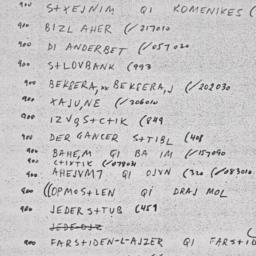 900 S+XEJNIM QI KOMENIKES (
900 BIZL AHER (/217010
900 DI ANDERBET (/057020
900 S+LOVBANK (993
900 BEKSERA,xx BEKSERA,J (/202030
900 XAJU,NE (/306010
900 IZVQS+C+IK (849
900 DER GANCER S+TIBL (408
900 BAHEM QI BA IM (/157090
900 C+IK+IK (/07803
900 AHEJVM7 QI OJVN (320 (/083010
900 ((OPMOS+LEN QI DRAJ MOL
900 JEDER S+TUB (459
JEDE-OJZ
900 FARS+IDEN-L-AJZER QI FARS+ID